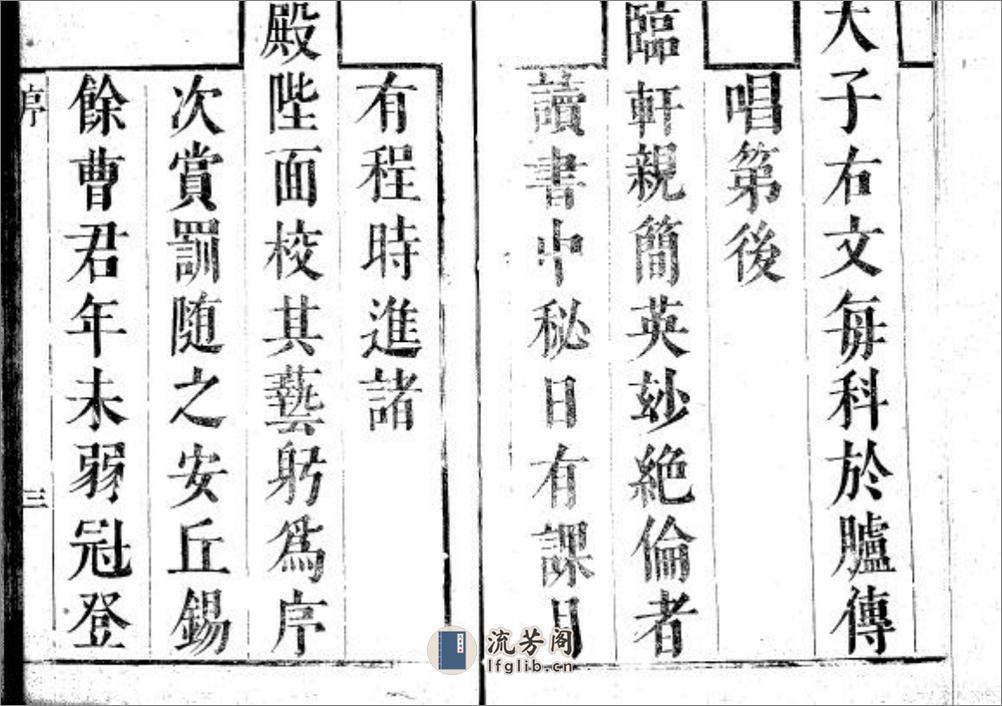 天子右文每科於臚傳
唱第後
臨軒親簡英玅絶倫者
讀書中秘日有課月
有程時進諸
殿陛面校其藝躬爲序
次賞罰随之安丘錫
餘曹君年未弱冠登
序
三
流芳阁
lfglib.cn